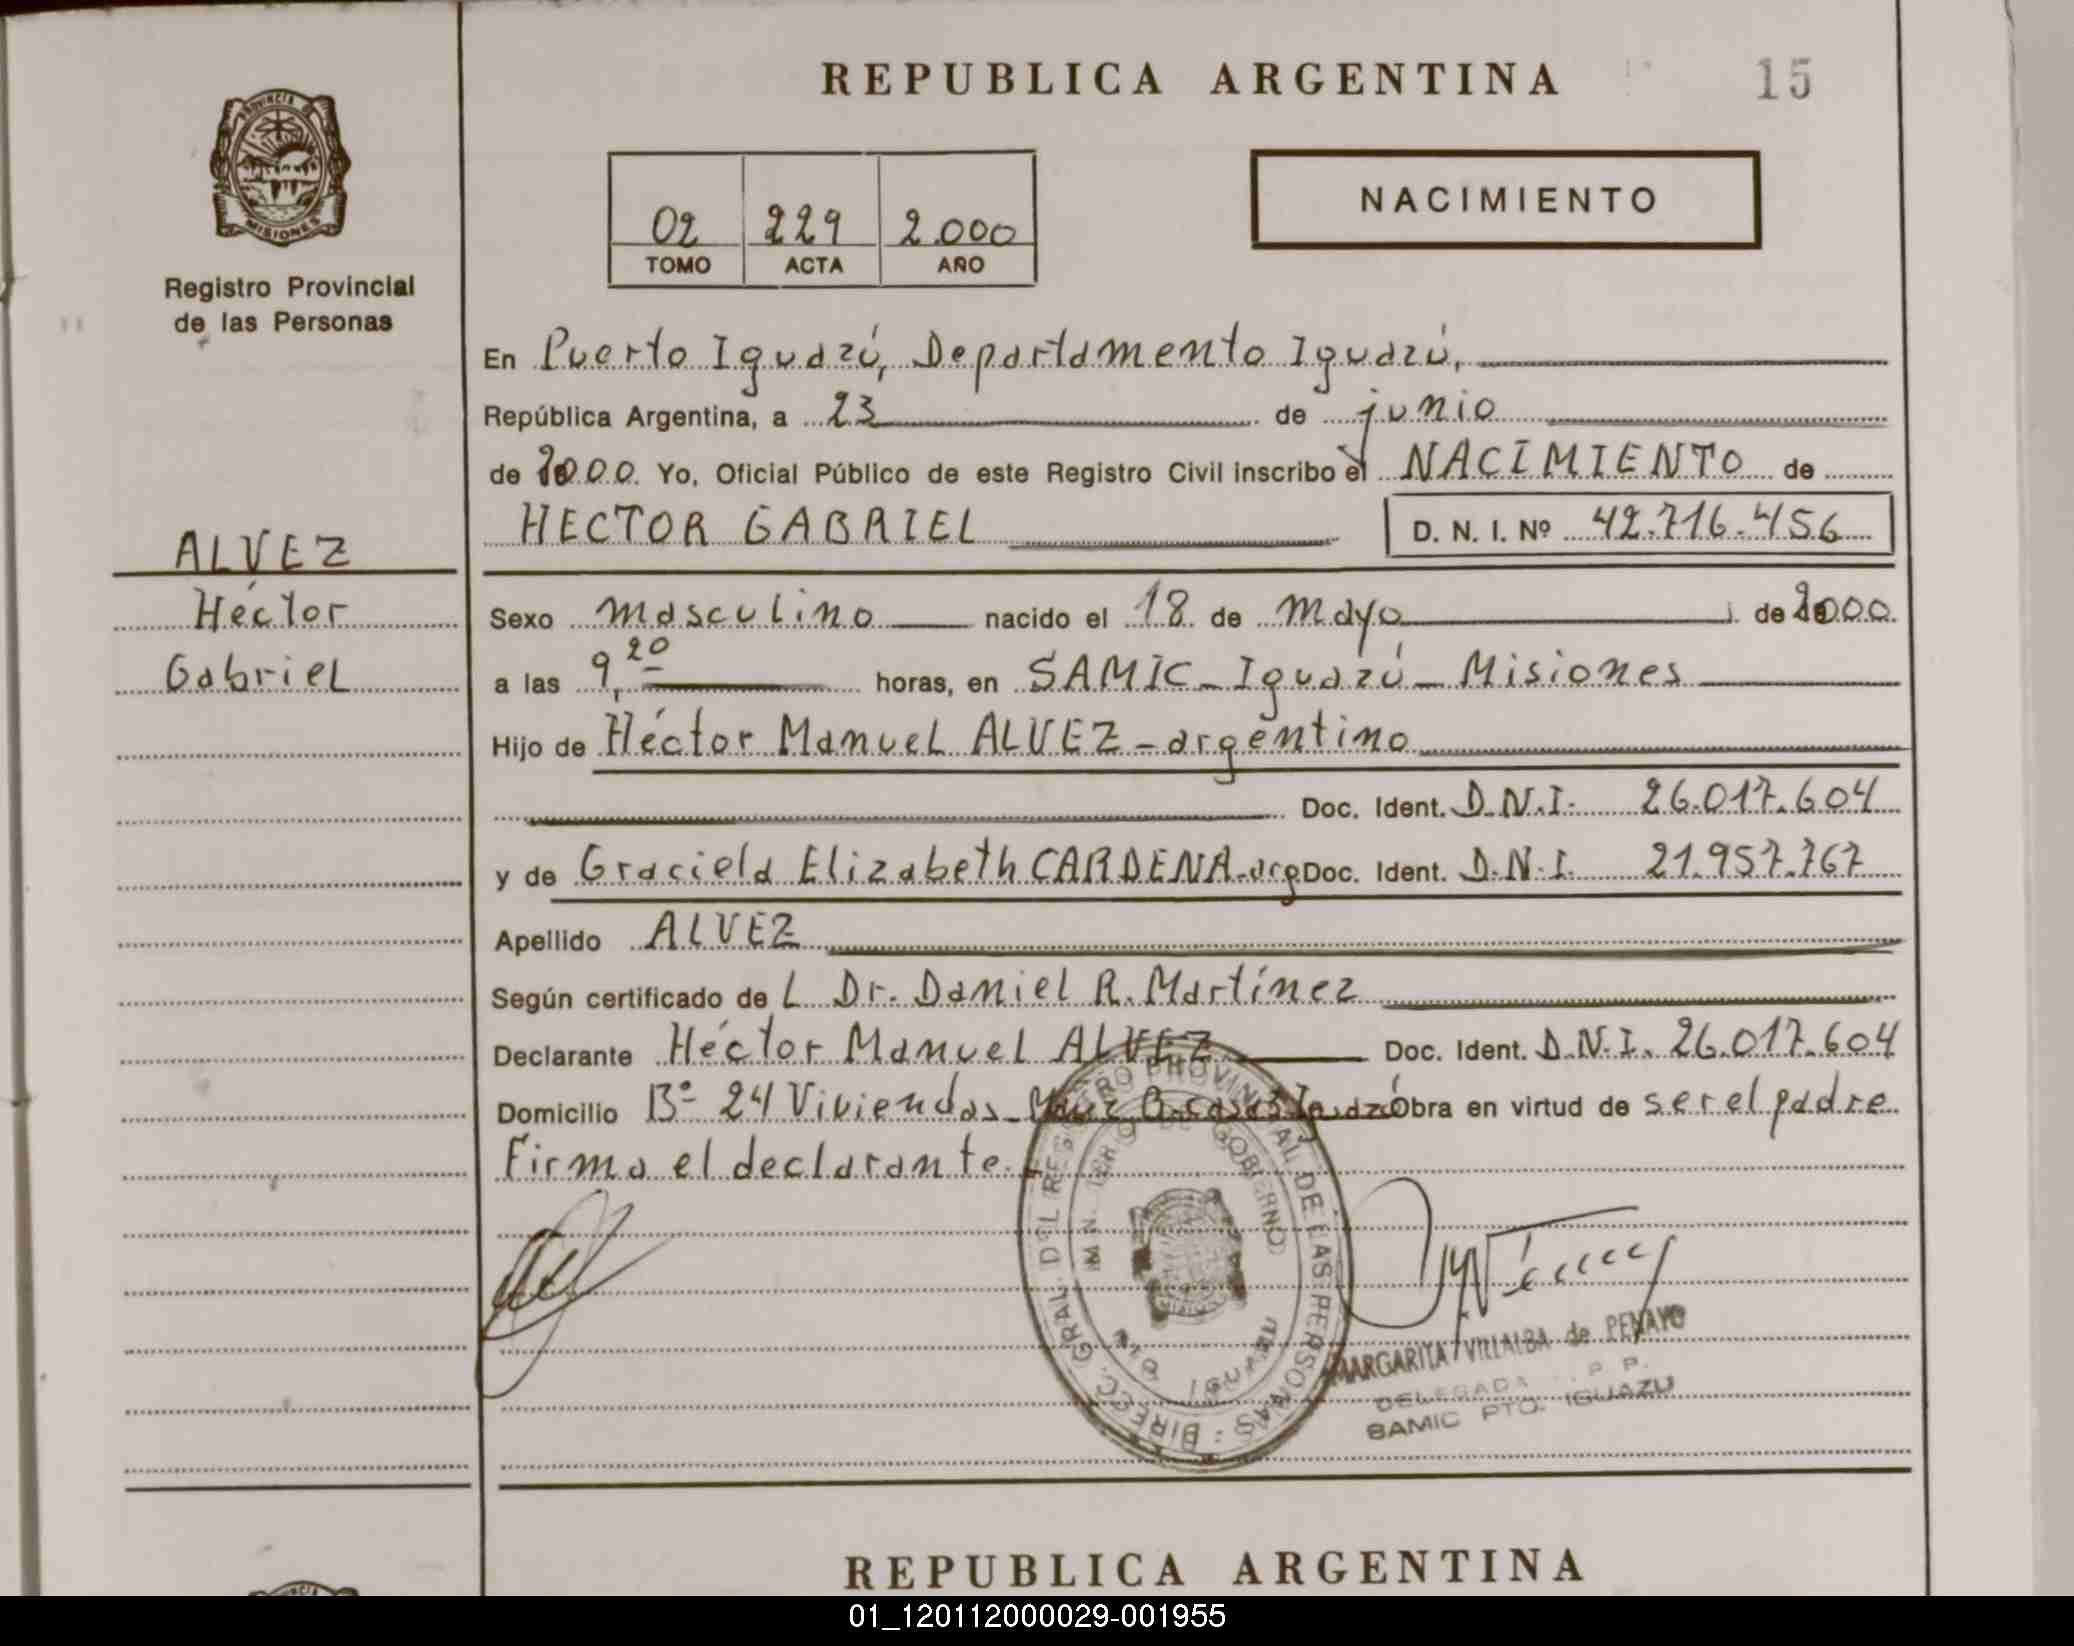 REPUBLICA ARGENTINA
15
PROVINCIA DE MISIONES
Registro Provincial
de las Personas
02 229 2.000
TOMO ACTA AÑO
NACIMIENTO
En Puerto Iguazú, Departamento Iguazú,
República Argentina, a 23 de junio
de 2000. Yo, Oficial Público de este Registro Civil inscribo el NACIMIENTO de
HECTOR GABRIEL D. N. I. Nº 42.716.456
ALVEZ
Héctor
Gabriel
Sexo masculino nacido el 18 de mayo de 2000.
a las 9,20 horas, en SAMIC - Iguazú - Misiones
Hijo de Héctor Manuel ALVEZ - argentino
Doc. Ident. D.N.I. 26.017.604
y de Graciela Elizabeth CARDENA - arg Doc. Ident. D.N.I. 21.957.767
Apellido ALVEZ
Según certificado de L Dr. Daniel R. Martínez
Declarante Héctor Manuel ALVEZ Doc. Ident. D.N.I. 26.017.604
Domicilio Bº 24 Viviendas - casa 3 Iguazú Obra en virtud de ser el padre
Firma el declarante.
DIRECC. GRAL. DEL REGISTRO PROVINCIAL DE LAS PERSONAS
GOBIERNO
MARGARITA VILLALBA de PENAYO
DELEGADA R. P. P.
SAMIC PTO. IGUAZU
REPUBLICA ARGENTINA
01_120112000029-001955